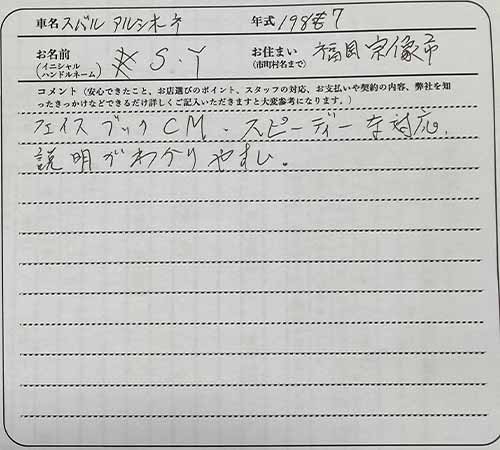 車名 スバル アルシオーネ 年式 1987
お名前 (イニシャル ハンドルネーム) S.Y お住まい (市町村名まで) 福岡 宗像市
コメント(安心できたこと、お店選びのポイント、スタッフの対応、お支払いや契約の内容、弊社を知
ったきっかけなどできるだけ詳しくご記入いただきますと大変参考になります。)
フェイスブックCM・スピーディーな対応、
説明がわかりやすい。